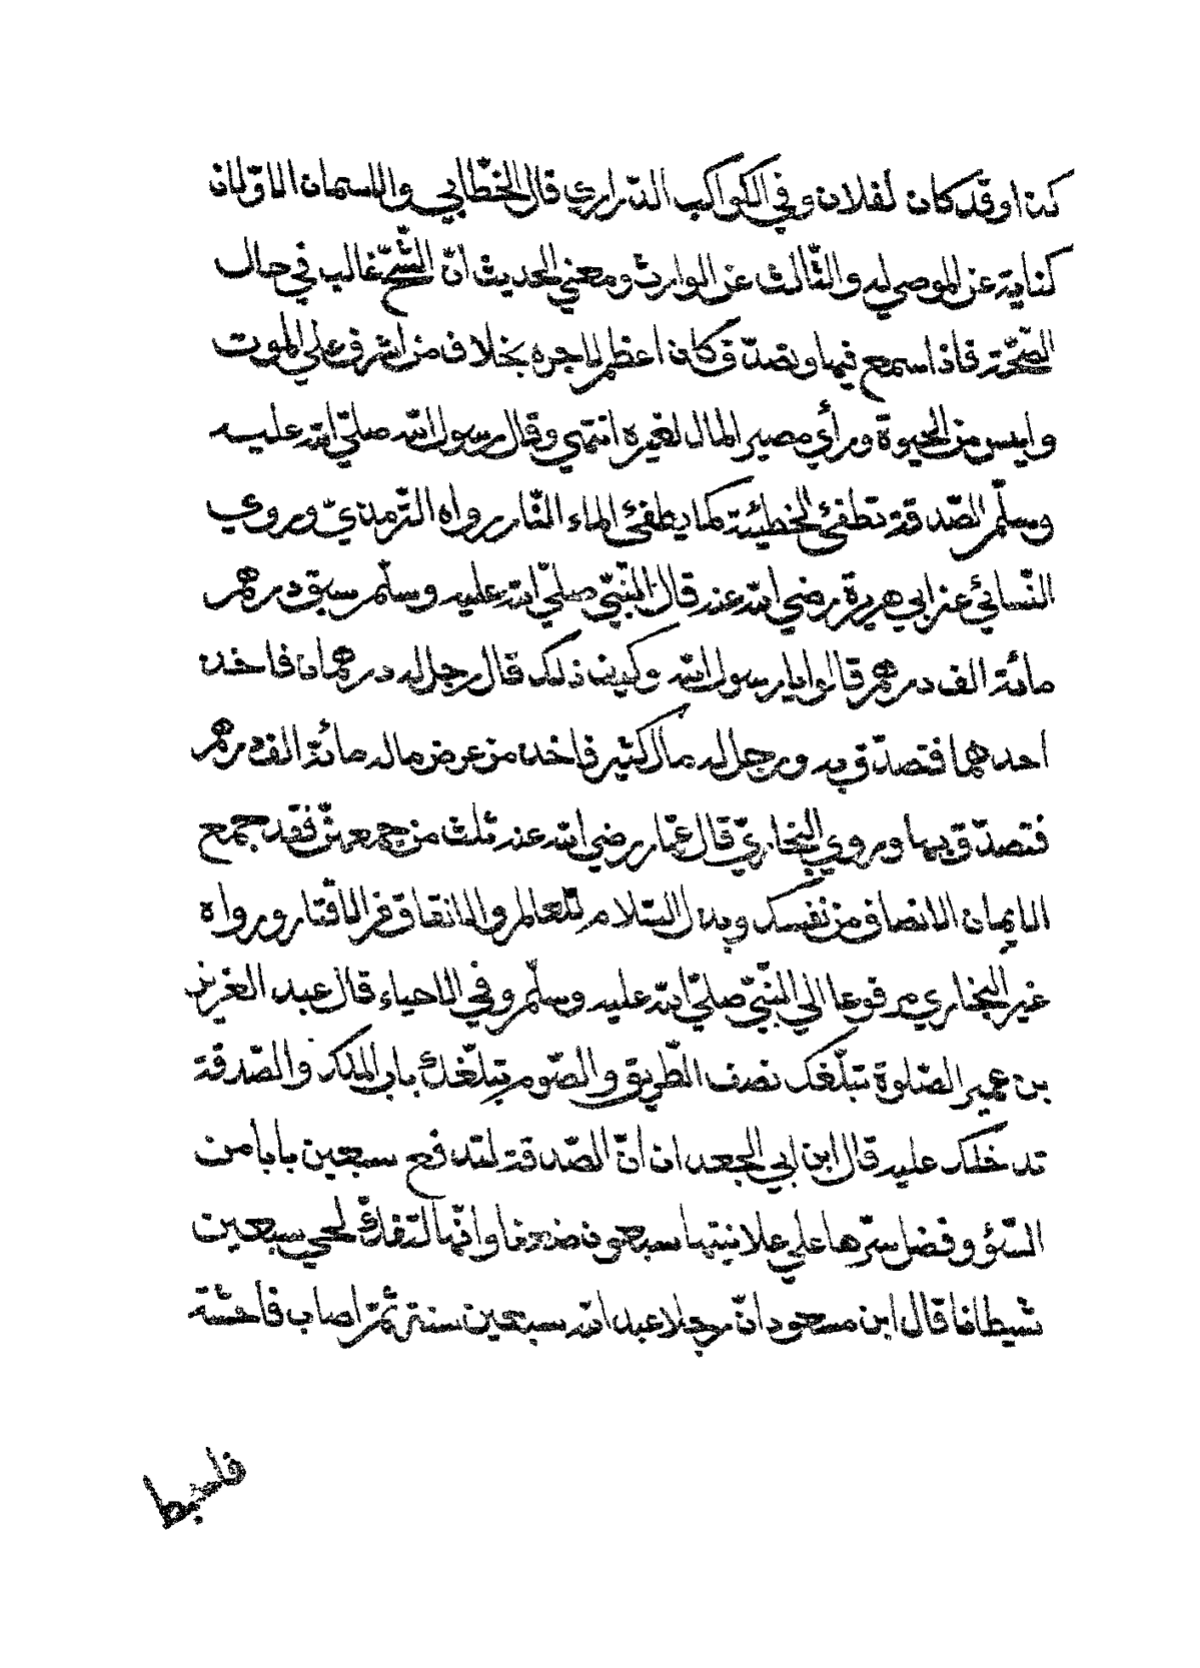 كذا وقد كان لفلان وفي الكواكب الدراري قال الخطّابي والاسمان الاوّلان
كناية عن الموصي له والثّالث عن الوارث ومعني الحديث انّ الشّحّ غالب في حال
الصّحّة فاذا سمح فيها وتصدّق كان اعظم لاجره بخلاف من اشرف علي الموت
وايس من الحيوة ورأي مصير المال لغيره انتهي وقال رسول الله صلّي الله عليه
وسلّم الصّدقة تطفئ الخطيئة كما يطفئ الماء النّار رواه التّرمذيّ وروي
النّسائي عن ابي هريرة رضي الله عنه قال النّبيّ صلّي الله عليه وسلّم سبق درهم
مائة الف درهم قالوا يا رسول الله وكيف ذلك قال رجل له درهمان فاخذ
احدهما فتصدّق به ورجل له مال كثير فاخذ من عرض ماله مائة الف درهم
فتصدّق بها وروي البخاريّ قال عمّار رضي الله عنه ثلث من جمعهنّ فقد جمع
الايمان الانصاف من نفسك وبذل السّلام للعالم والانفاق من الاقتار ورواه
غير البخاري مرفوعا الي النّبيّ صلّي الله عليه وسلّم وفي الاحياء قال عبد العزيز
بن عمير الصّلوة تبلّغك نصف الطّريق والصّوم يبلّغك باب الملك والصّدقة
تدخلك عليه قال ابن ابي الجعد ان انّ الصّدقة لتدفع سبعين بابا من
السّوٴ وفضل سرّها علي علانيتها سبعون ضعفا وانّها لتفكّ لحيي سبعين
شيطانا قال ابن مسعود انّ رجلا عبد الله سبعين سنة ثمّ اصاب فاحشة